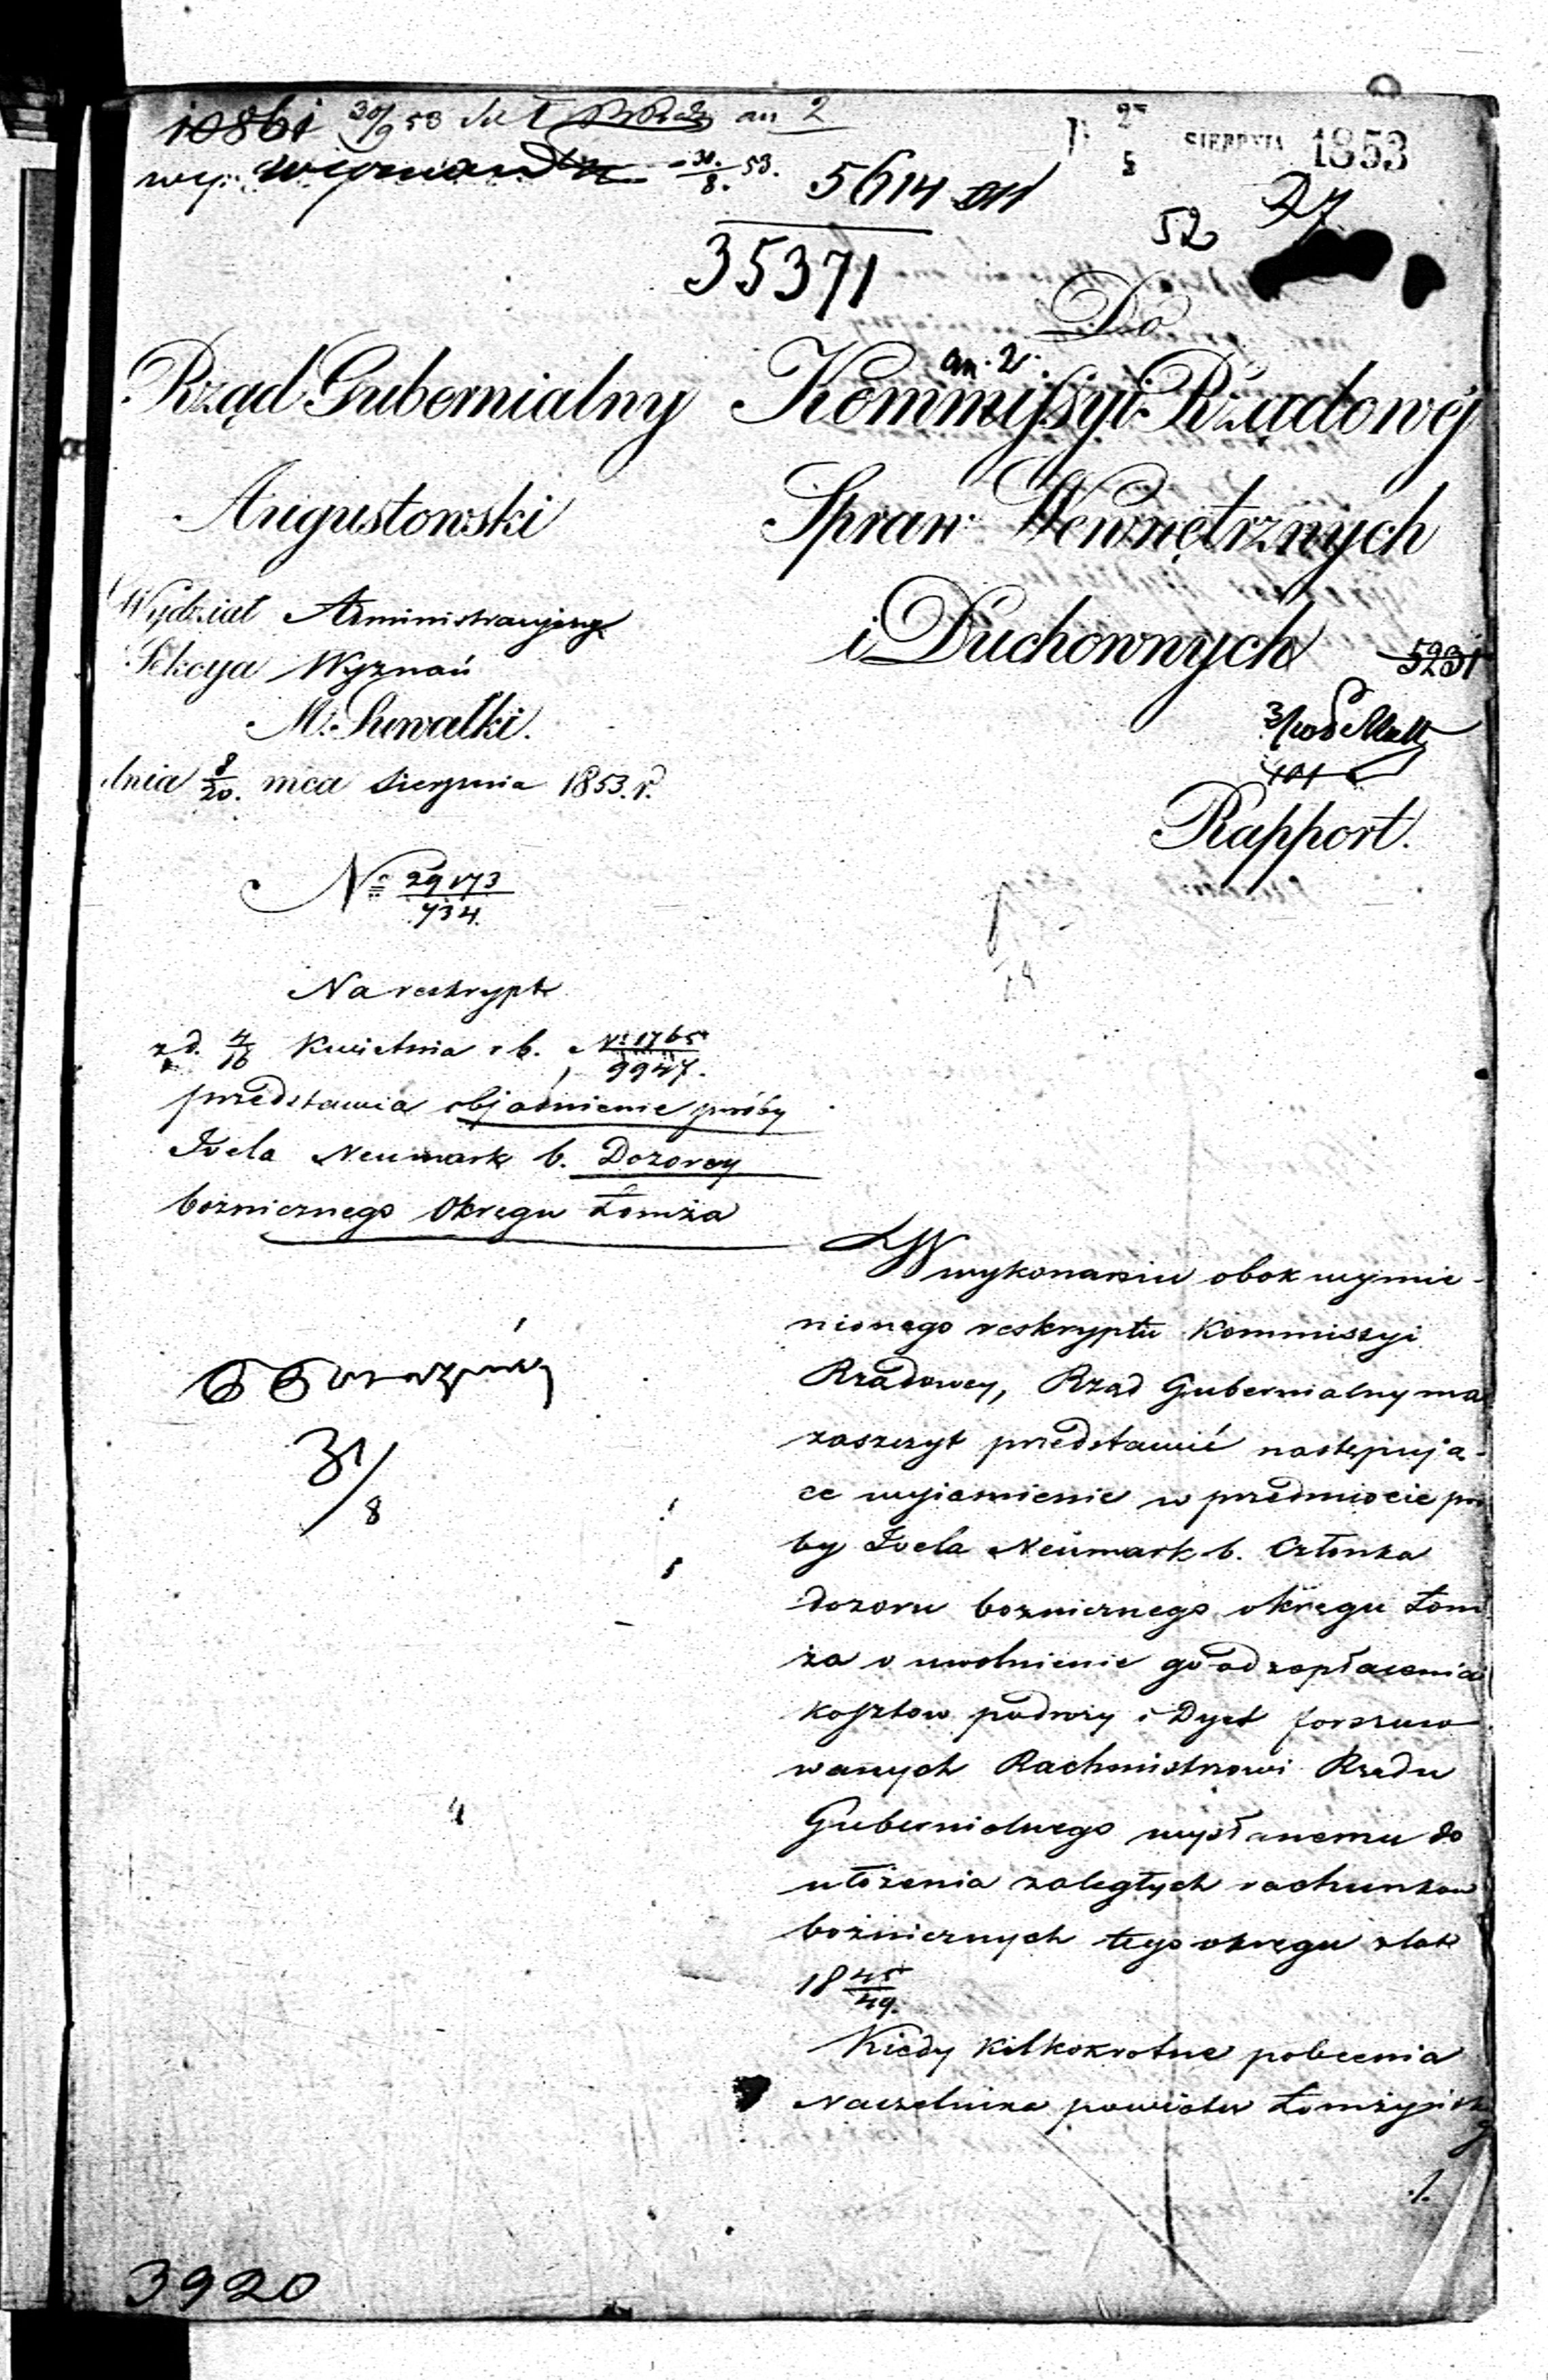 10861 30/9 53 an 2
wy. 31./8. 53. 5614
SIERPNIA 1853
35371
52 27
Do
an. 2.
Rząd Gubernialny
Augustowski
Wydział Administracyjny
Sekcya Wyznań
M. Suwałki.
dnia 8/20. mca Sierpnia 1853. r.
No 29173/734.
Na reskrypt
z d. 4/16 Kwietnia r b. No 1765/9947.
przedstawia objaśnienie prośby
Joela Neumark b. Dozorcy
bożnicznego Okręgu Łomża
31/8
Kommissyi Rządowéj
Spraw Wewnętrznych
i Duchownych
5231
Rapport.
W wykonaniu obok wymie-
nionego reskryptu Kommissyi
Rządowey, Rząd Gubernialny ma
zaszczyt przedstawić następują-
ce wyiaśnienie w przedmiocie pro
by Joela Neumark b. Członka
dozoru bożnicznego okręgu Łom
ża o uwolnienie go od zapłacenia
kosztow podroży i Dyet forszuso
wanych Rachmistrzowi Rządu
Gubernialnego wysłanemu do
ułożenia zaległych rachunkow
bożnicznych tego okręgu z lat
18 45/49.
Kiedy kilkokrotne polecenia
Naczelnika powiatu Łomżyńsk
./.
3920